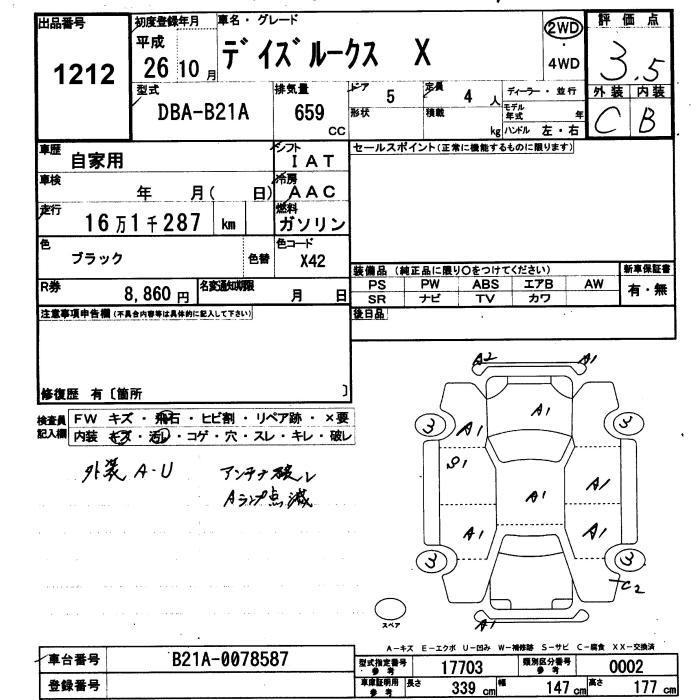 出品番号 初度登録年月 車名・グレード 2WD 評価点
1212 平成 26年 10月 デイズルークス X ・ 4WD 3.5
型式 排気量 ドア 5 定員 4人 ディーラー・並行 外装 内装
DBA-B21A 659 CC 形状 積載 kg モデル年式 年 C B
ハンドル 左・右
車歴 自家用 シフト IAT セールスポイント(正常に機能するものに限ります)
車検 年 月( 日) 冷房 AAC
走行 16万1千287 km 燃料 ガソリン
色 ブラック 色替 色コード X42
装備品 (純正品に限り○をつけてください) 新車保証書
PS PW ABS エアB AW 有・無
SR ナビ TV カワ
R券 8,860円 名変通知期限 月 日
後日品
注意事項申告欄(不具合内容等は具体的に記入して下さい)
修復歴 有〔箇所 〕
検査員記入欄 FW キズ・飛石・ヒビ割・リペア跡・×要
内装 キズ・汚レ・コゲ・穴・スレ・キレ・破レ
外装 A-U アンテナ破レ
Aランプ点滅
A2 A1
A1
3 A1 3
S1
A1 A1
A1 A1
3 3
C2
スペア A1
A-キズ E-エクボ U-凹み W-補修跡 S-サビ C-腐食 XX-交換済
車台番号 B21A-0078587 型式指定番号 参考 17703 類別区分番号 参考 0002
登録番号 車庫証明用 参考 長さ 339 cm 幅 147 cm 高さ 177 cm